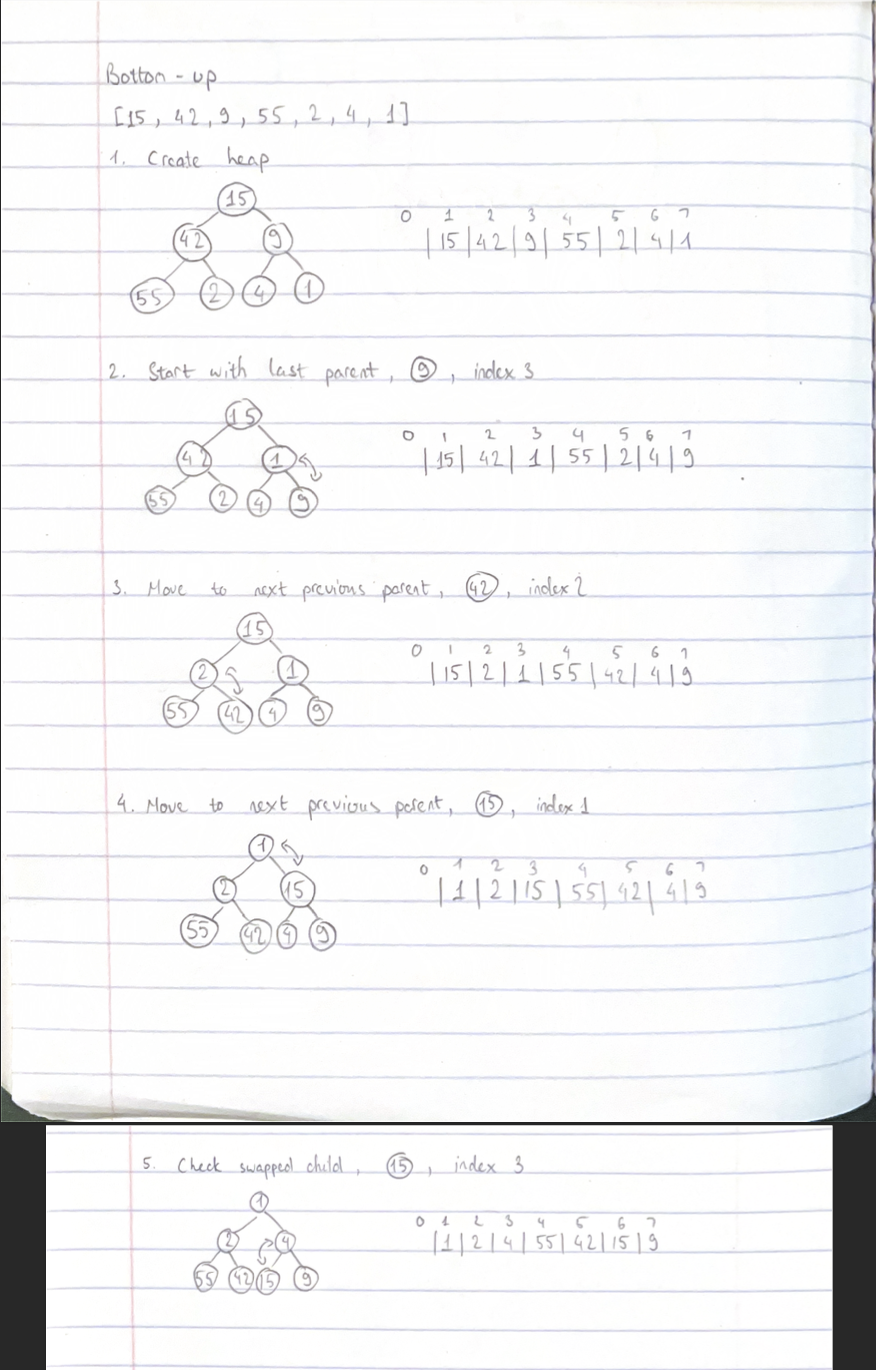 Botton - up
[15, 42, 9, 55, 2, 4, 1]
1. Create heap
15
42 9
55 2 4 1
0 1 2 3 4 5 6 7
|15|42|9|55|2|4|1
2. Start with last parent, 9, index 3
15
42 1
55 2 4 9
0 1 2 3 4 5 6 7
|15|42|1|55|2|4|9
3. Move to next previous parent, 42, index 2
15
2 1
55 42 4 9
0 1 2 3 4 5 6 7
|15|2|1|55|42|4|9
4. Move to next previous parent, 15, index 1
1
2 15
55 42 4 9
0 1 2 3 4 5 6 7
|1|2|15|55|42|4|9
5. Check swapped child, 15, index 3
1
2 4
55 42 15 9
0 1 2 3 4 5 6 7
|1|2|4|55|42|15|9